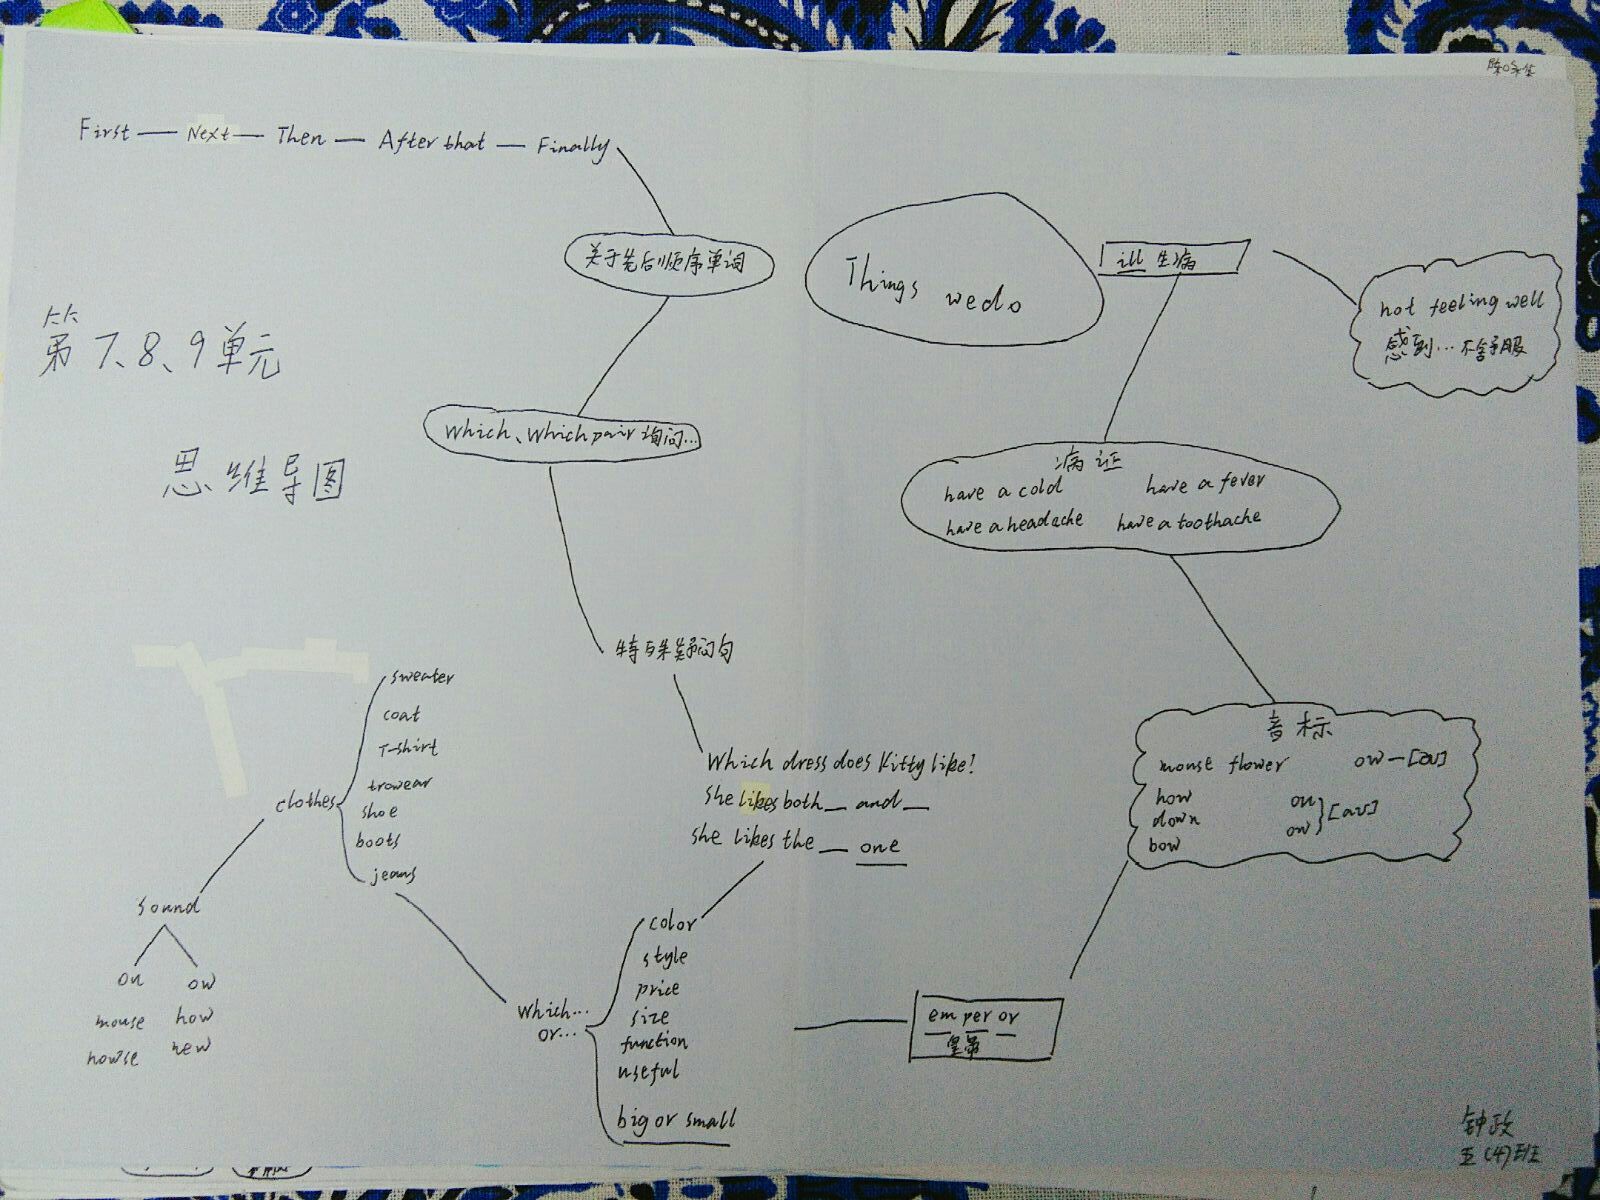 First — Next — Then — After that — Finally
关于先后顺序单词
Things we do
ill 生病
not feeling well
感到…不舒服
第7、8、9单元
思维导图
Which、Which pair 询问…
病证
have a cold have a fever
have a headache have a toothache
特殊疑问句
Which dress does Kitty like?
She likes both _ and _
She likes the _ one
音标
mouse flower ow—[au]
how ou
down ow [au]
bow
clothes
sweater
coat
T-shirt
trowear
shoe
boots
jeans
sound
ou ow
mouse how
howse new
which...
or...
color
style
price
size
function
useful
big or small
em per or
皇帝
钟政
五(4)班